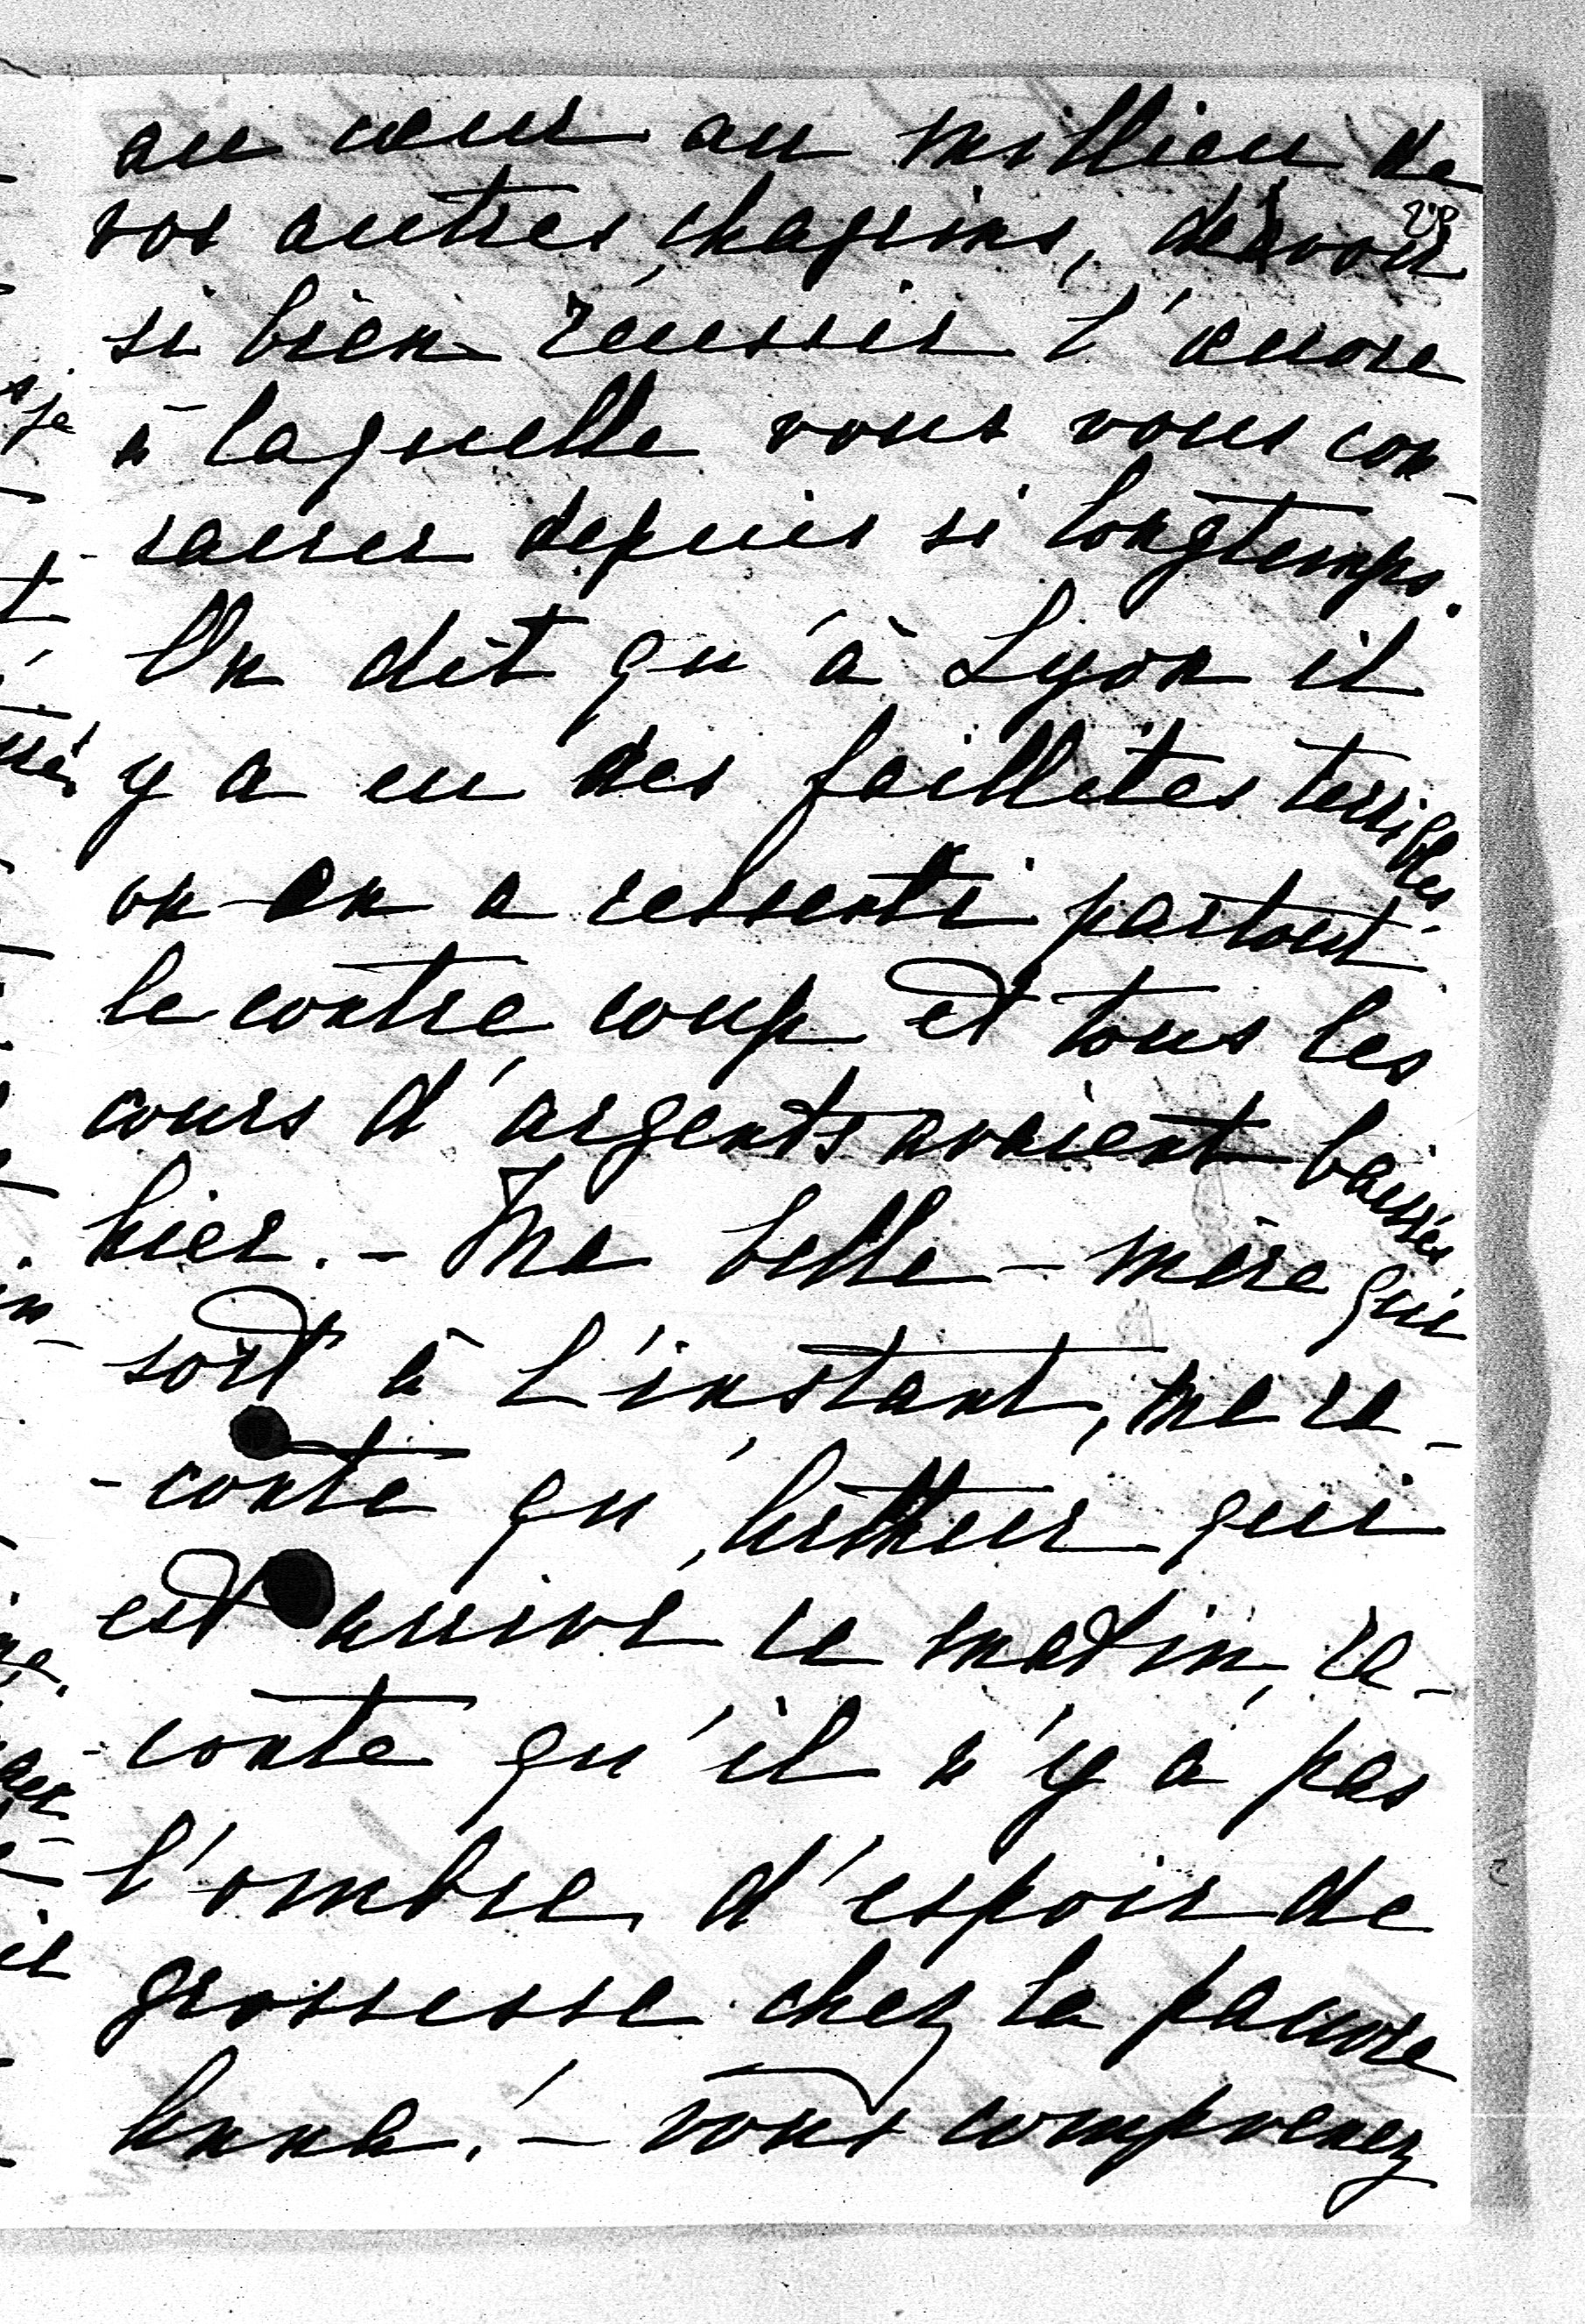 au cœur au millieu de
vos autres chagrins, de voir
si bien reussir l'œuvre
à laquelle vous vous con-
-sacrer depuis si longtemps.
On dit qu'à Lyon il
y a eu des faillites terribles
on en a ressenti partout
le contre coup et tous les
cours d'argents avaient baissés
hier. - Ma belle-mère qui
sort à l'instant, me ra-
-conte qu'Arthur qui
est arrivé ce matin, ra-
-conte qu'il n'y a pas
l'ombre d'espoir de
grossesse chez la pauvre
Anna! - vous comprenez